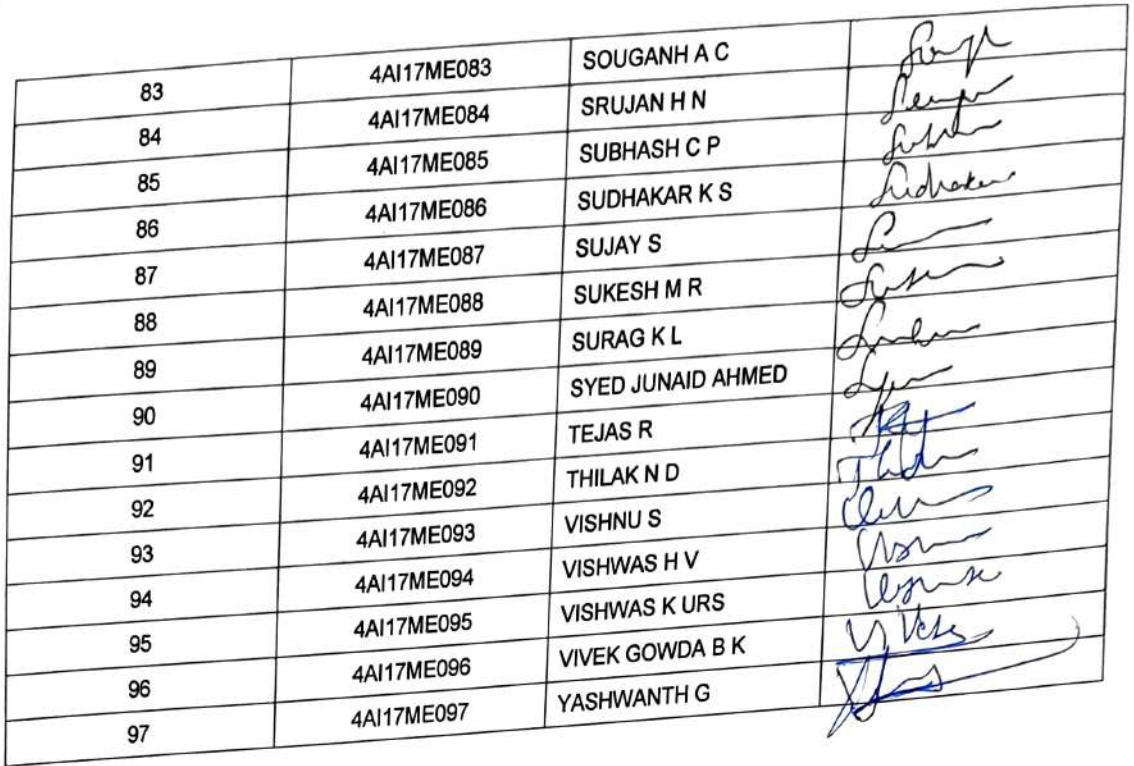 83 4AI17ME083 SOUGANH A C
84 4AI17ME084 SRUJAN H N
85 4AI17ME085 SUBHASH C P
86 4AI17ME086 SUDHAKAR K S Sudhakar
87 4AI17ME087 SUJAY S
88 4AI17ME088 SUKESH M R
89 4AI17ME089 SURAG K L
90 4AI17ME090 SYED JUNAID AHMED
91 4AI17ME091 TEJAS R
92 4AI17ME092 THILAK N D
93 4AI17ME093 VISHNU S
94 4AI17ME094 VISHWAS H V
95 4AI17ME095 VISHWAS K URS
96 4AI17ME096 VIVEK GOWDA B K
97 4AI17ME097 YASHWANTH G